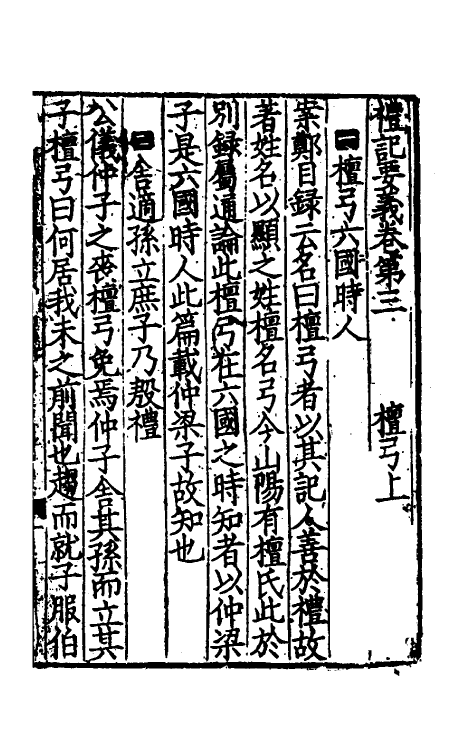 禮記要義卷第三　　檀弓上
一 檀弓六國時人
案鄭目録云名曰檀弓者以其記人善於禮故
著姓名以顯之姓檀名弓今山陽有檀氏此於
别録屬通論此檀弓在六國之時知者以仲梁
子是六國時人此篇載仲梁子故知也
二 舍適孫立庶子乃殷禮
公儀仲子之喪檀弓免焉仲子舍其孫而立其
子檀弓曰何居我未之前聞也趨而就子服伯